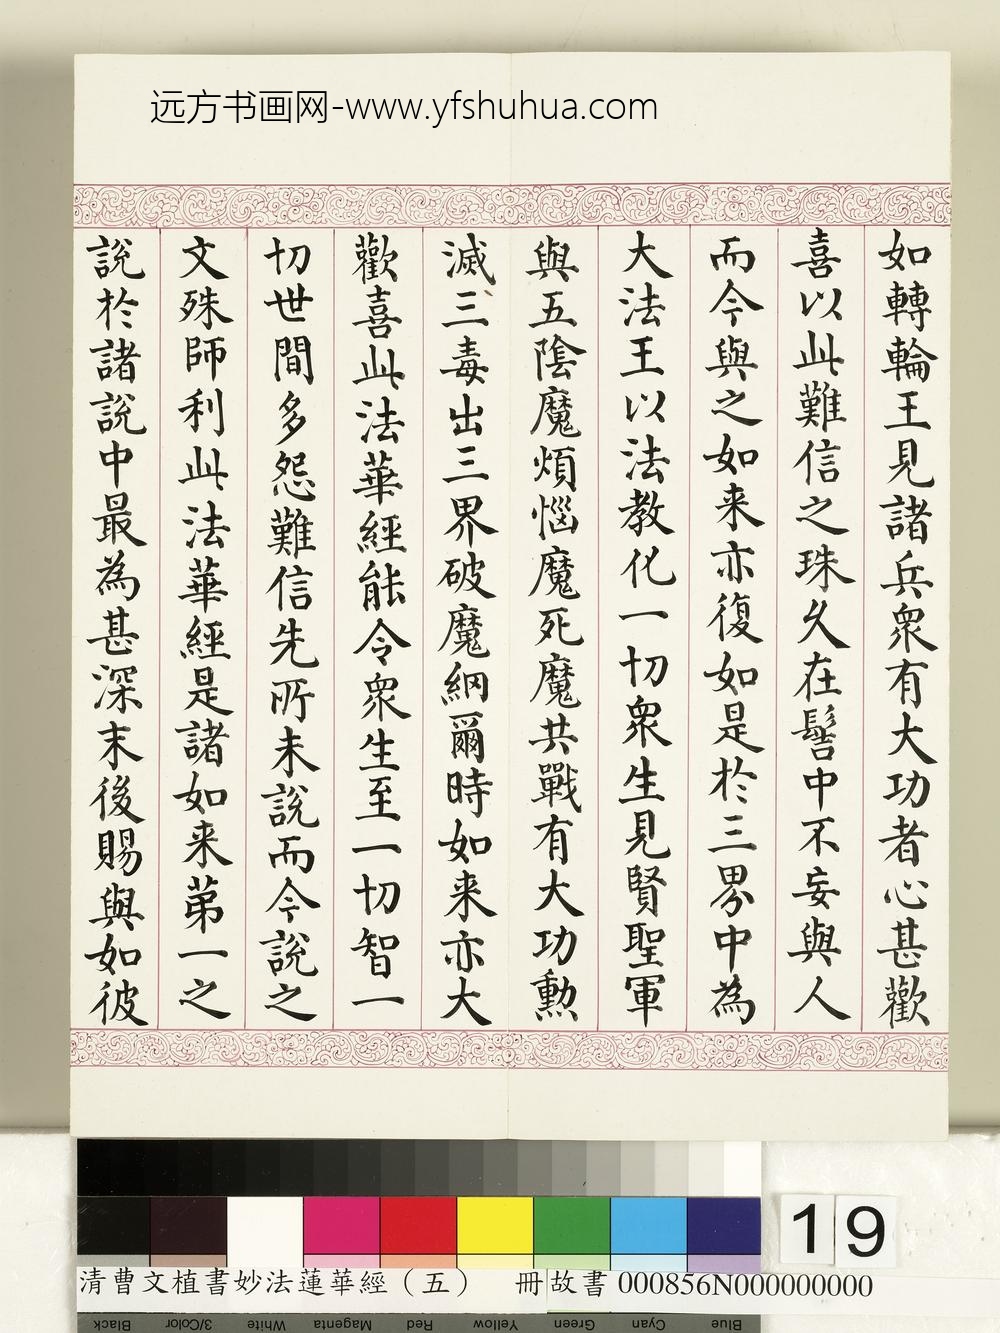 远方书画网-www.yfshuhua.com
如轉輪王見諸兵衆有大功者心甚歡
喜以此難信之珠久在髻中不妄與人
而今與之如来亦復如是於三界中為
大法王以法教化一切衆生見賢聖軍
與五陰魔煩惱魔死魔共戰有大功勲
滅三毒出三界破魔網爾時如来亦大
歡喜此法華經能令衆生至一切智一
切世間多怨難信先所未說而今說之
文殊師利此法華經是諸如来苐一之
說於諸說中最為甚深末後賜與如彼
19
清曹文植書妙法蓮華經（五） 冊 故書 000856N000000000
Black 3/Color White Magenta Red Yellow Green Cyan Blue